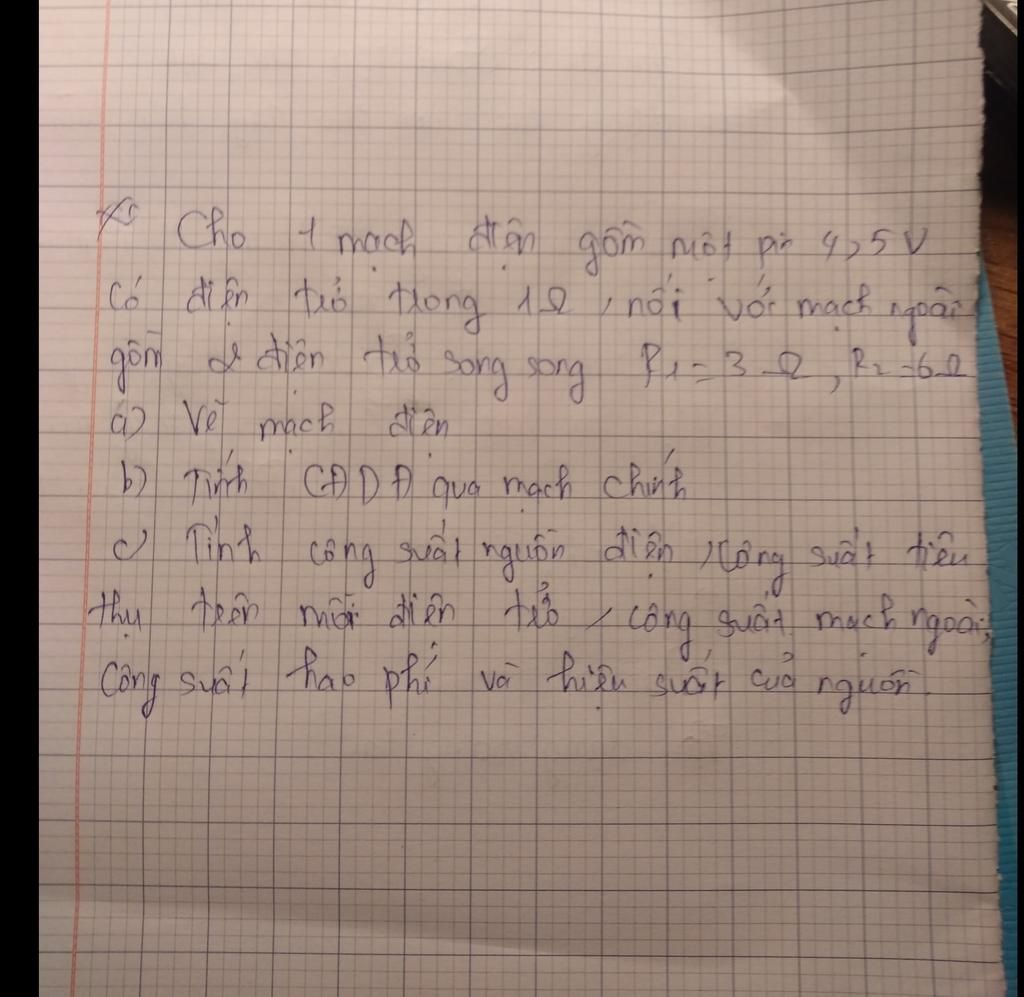 Cho 1 mạch điện gồm một pin 4,5V
có điện trở trong 1Ω, nối với mạch ngoài
gồm 2 điện trở song song R₁ = 3 Ω, R₂ = 6Ω
a) Vẽ mạch điện
b) Tính CĐDĐ qua mạch chính
c) Tính công suất nguồn điện, công suất tiêu
thụ trên mỗi điện trở, công suất mạch ngoài,
Công suất hao phí và hiệu suất của nguồn.